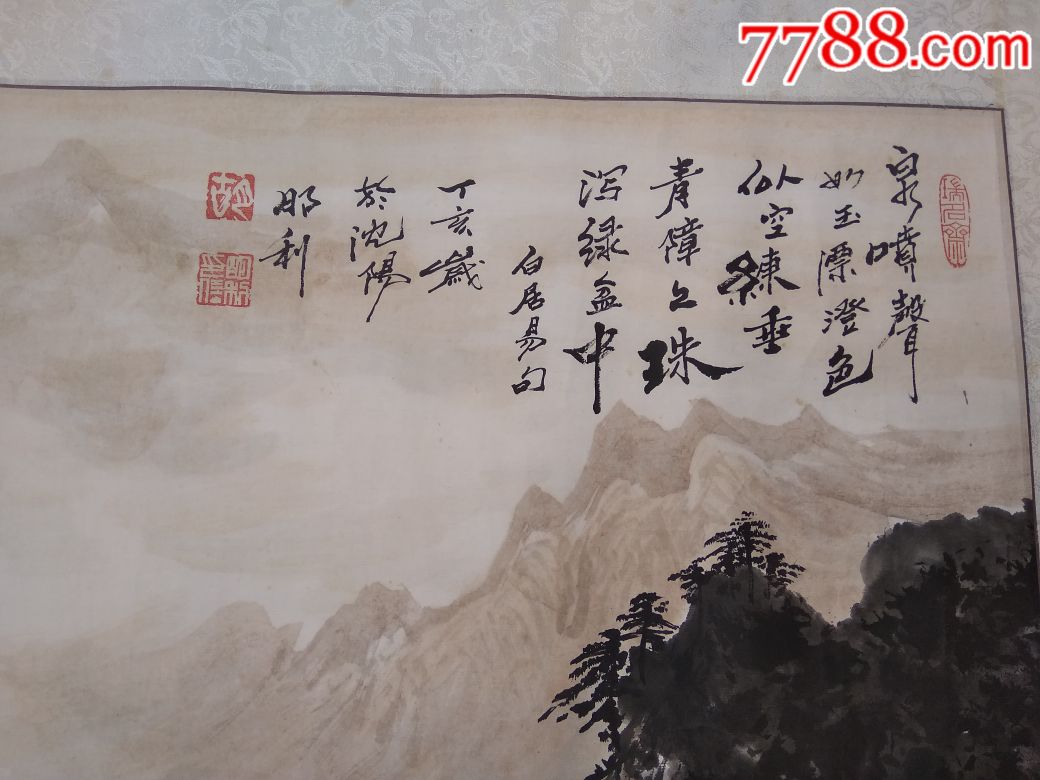 7788.com
泉噴聲
如玉潭澄色
似空練垂
青障上珠
瀉绿盆中
白居易句
丁亥歲
於沈陽
明利